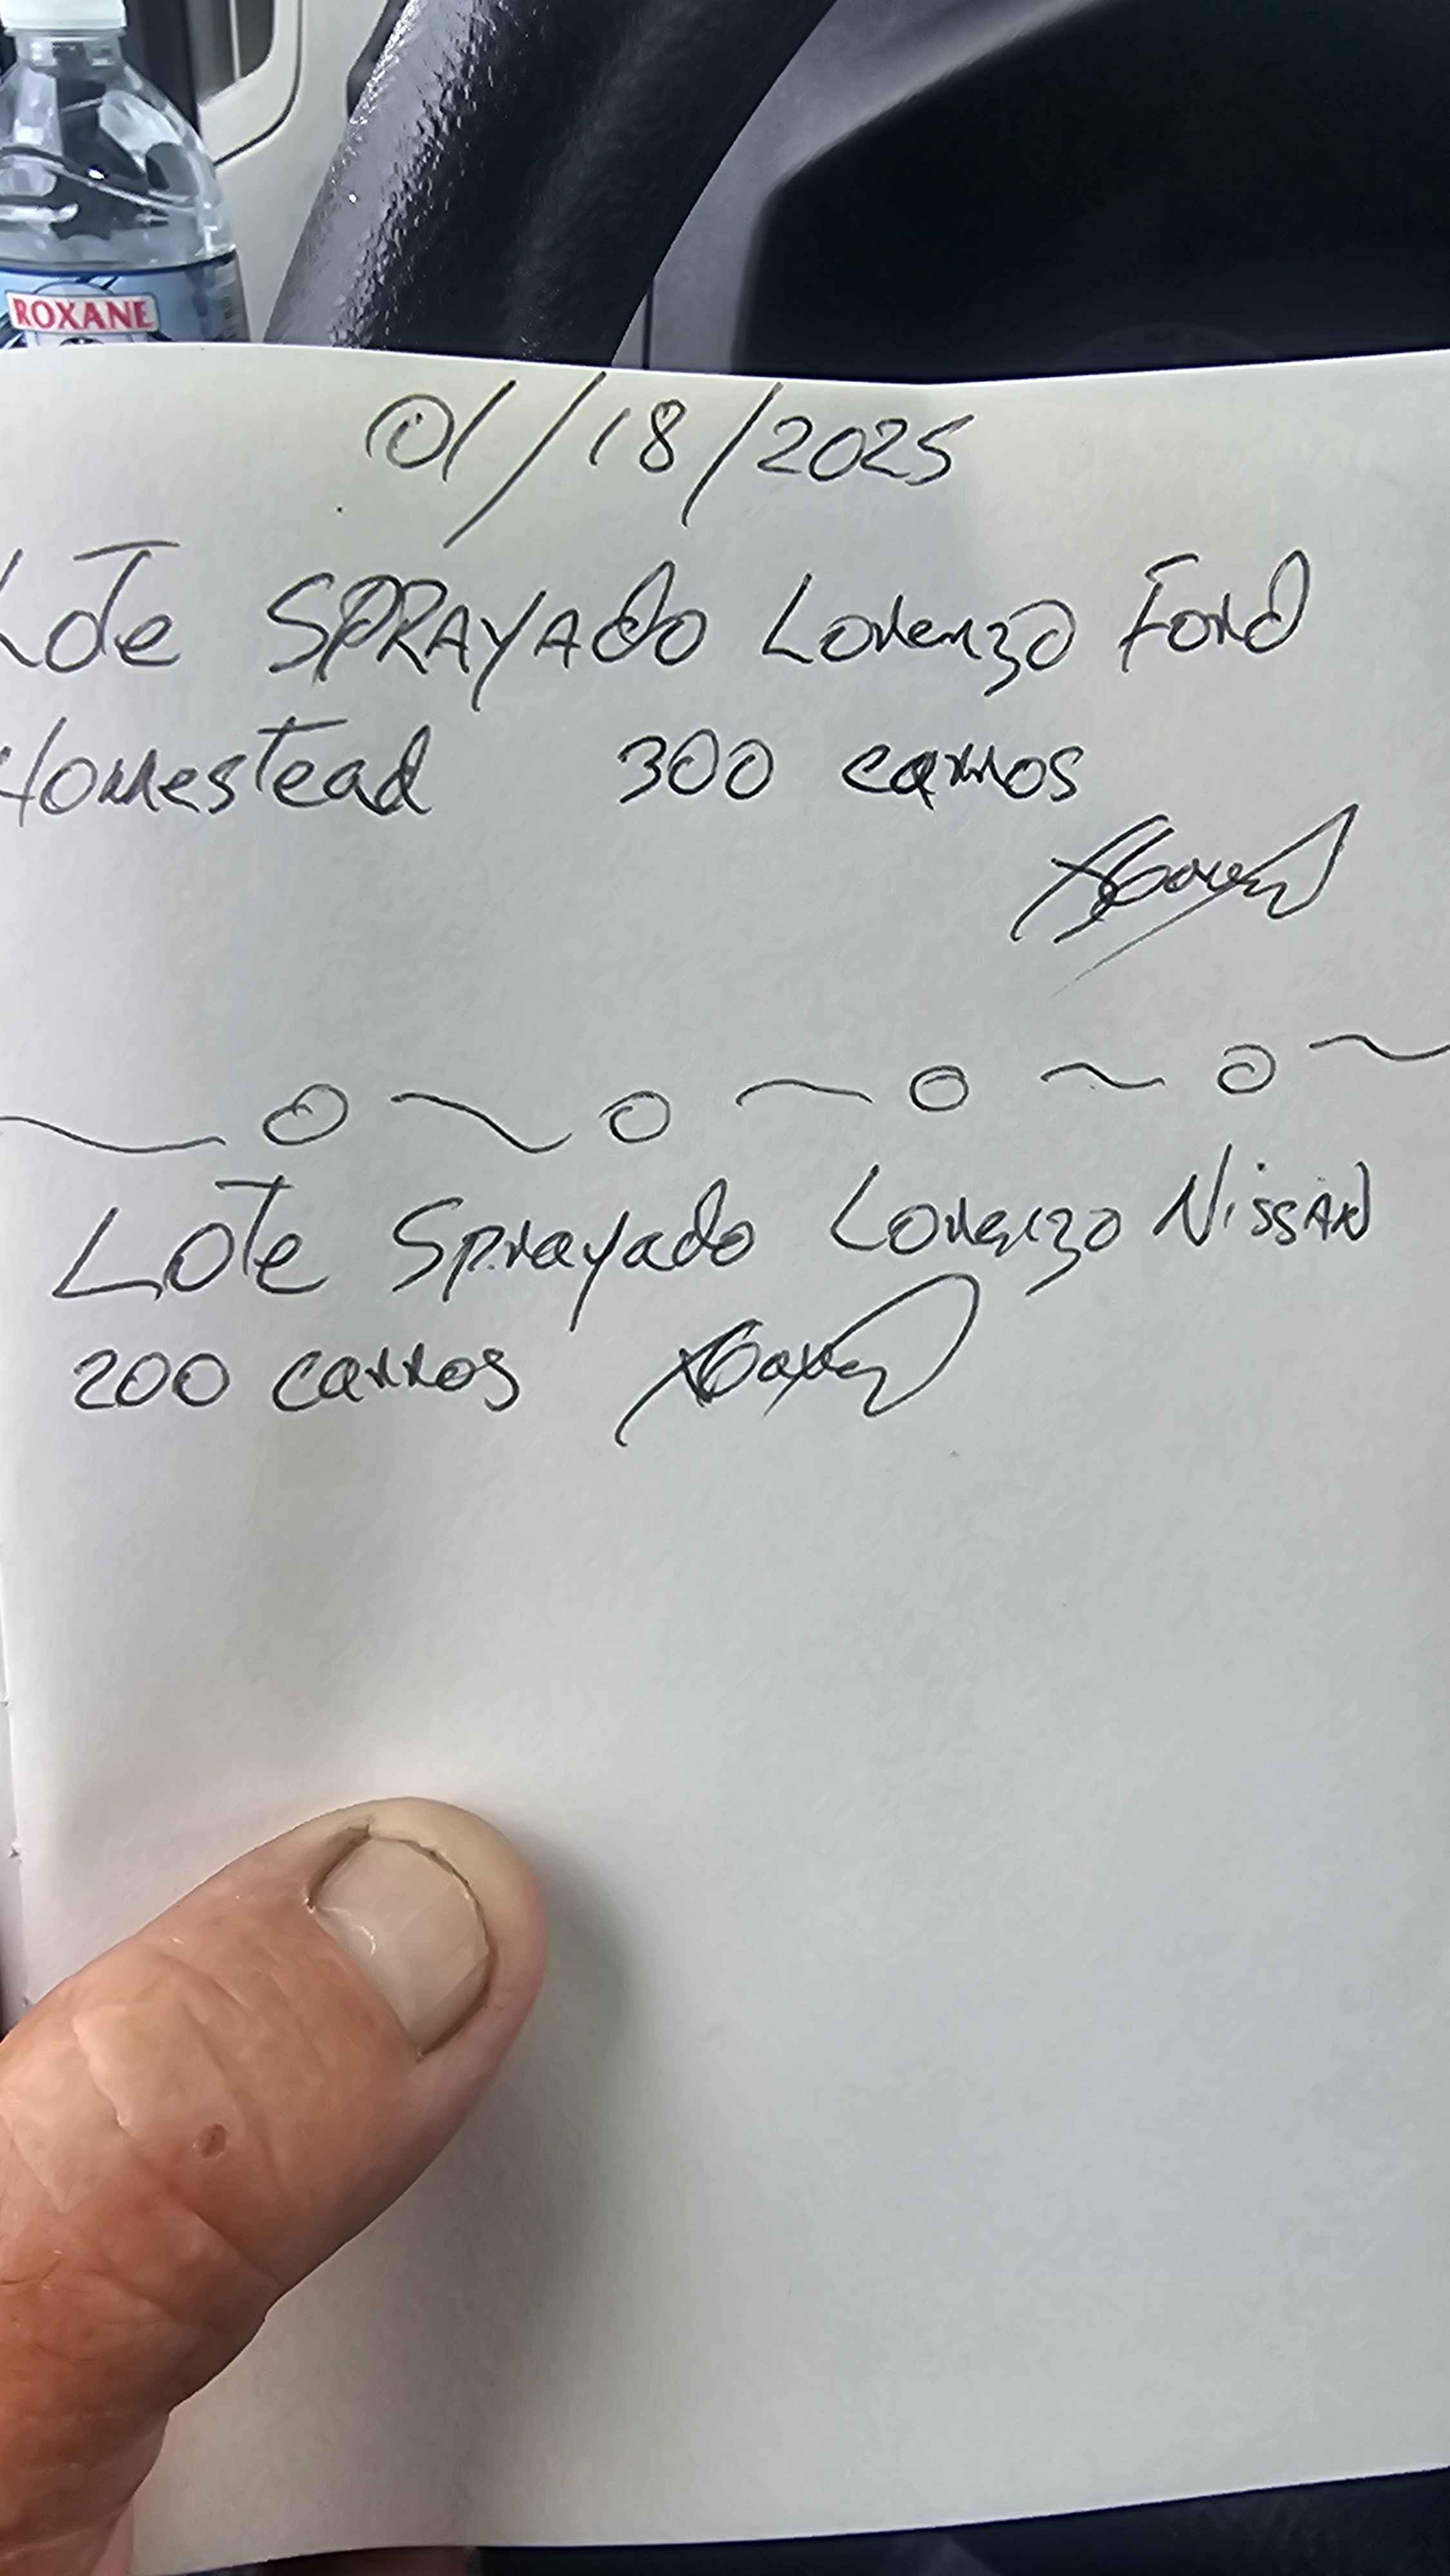 ROXANE
01/18/2025
Lote SPRAYAdo Lorenzo Ford
Homestead 300 carros
Lote Sprayado Lorenzo Nissan
200 carros